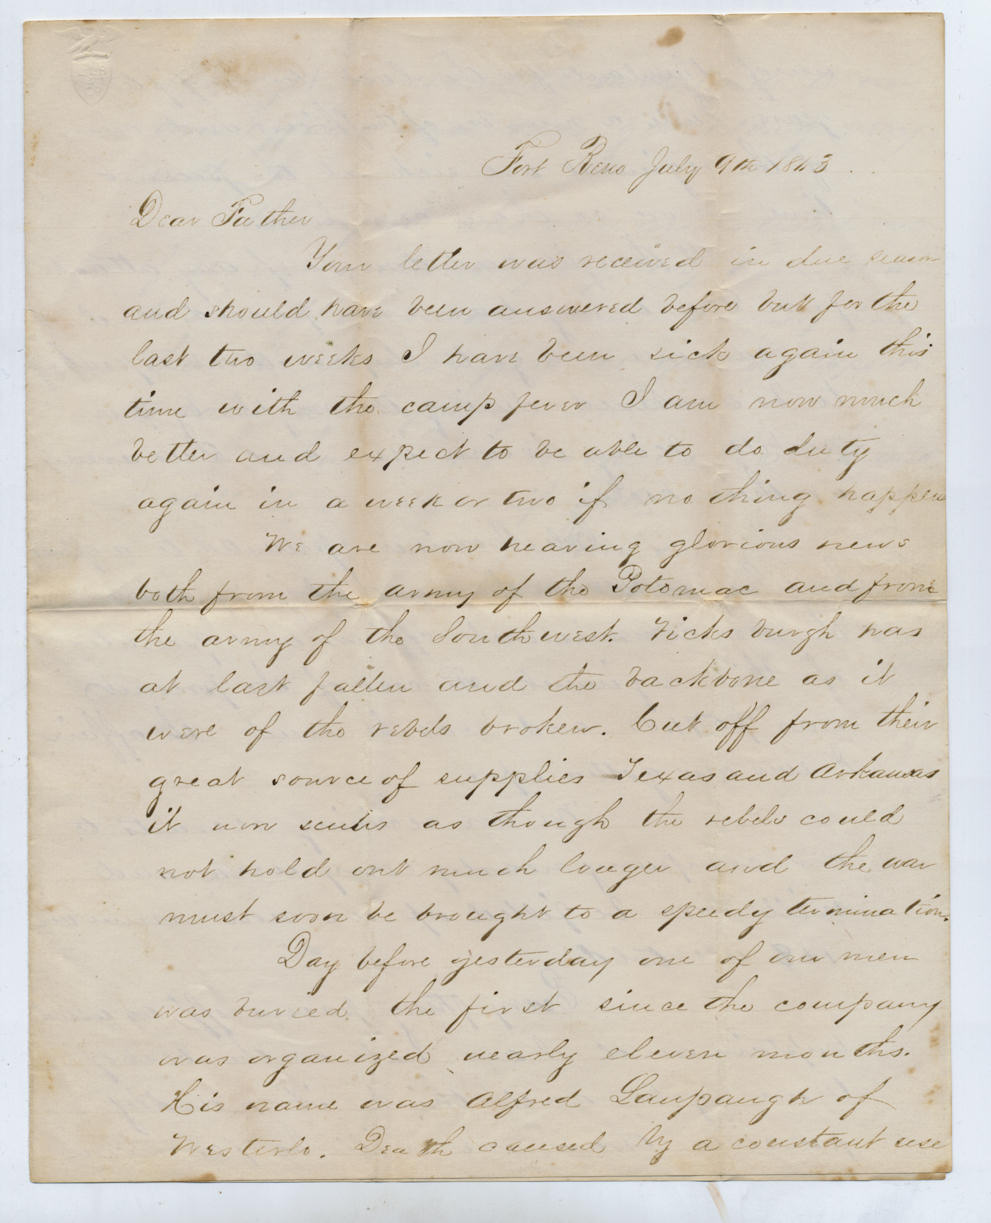 Fort Reno July 9th 1863
Dear Father
Your letter was received in due season
and should have been answered before but for the
last two weeks I have been sick again this
time with the camp fever I am now much
better and expect to be able to do duty
again in a week or two if nothing happens
We are now hearing glorious news
both from the army of the Potomac and from
the army of the Southwest. Vicksburgh has
at last fallen and the backbone as it
were of the rebels broken. Cut off from their
great source of supplies Texas and Arkansas
it now seems as though the rebels could
not hold out much longer and the war
must soon be brought to a speedy termination.
Day before yesterday one of our men
was buried the first since the company
was organized nearly eleven months.
His name was Alfred Laupaugh of
Westerlo. Death caused by a constant use